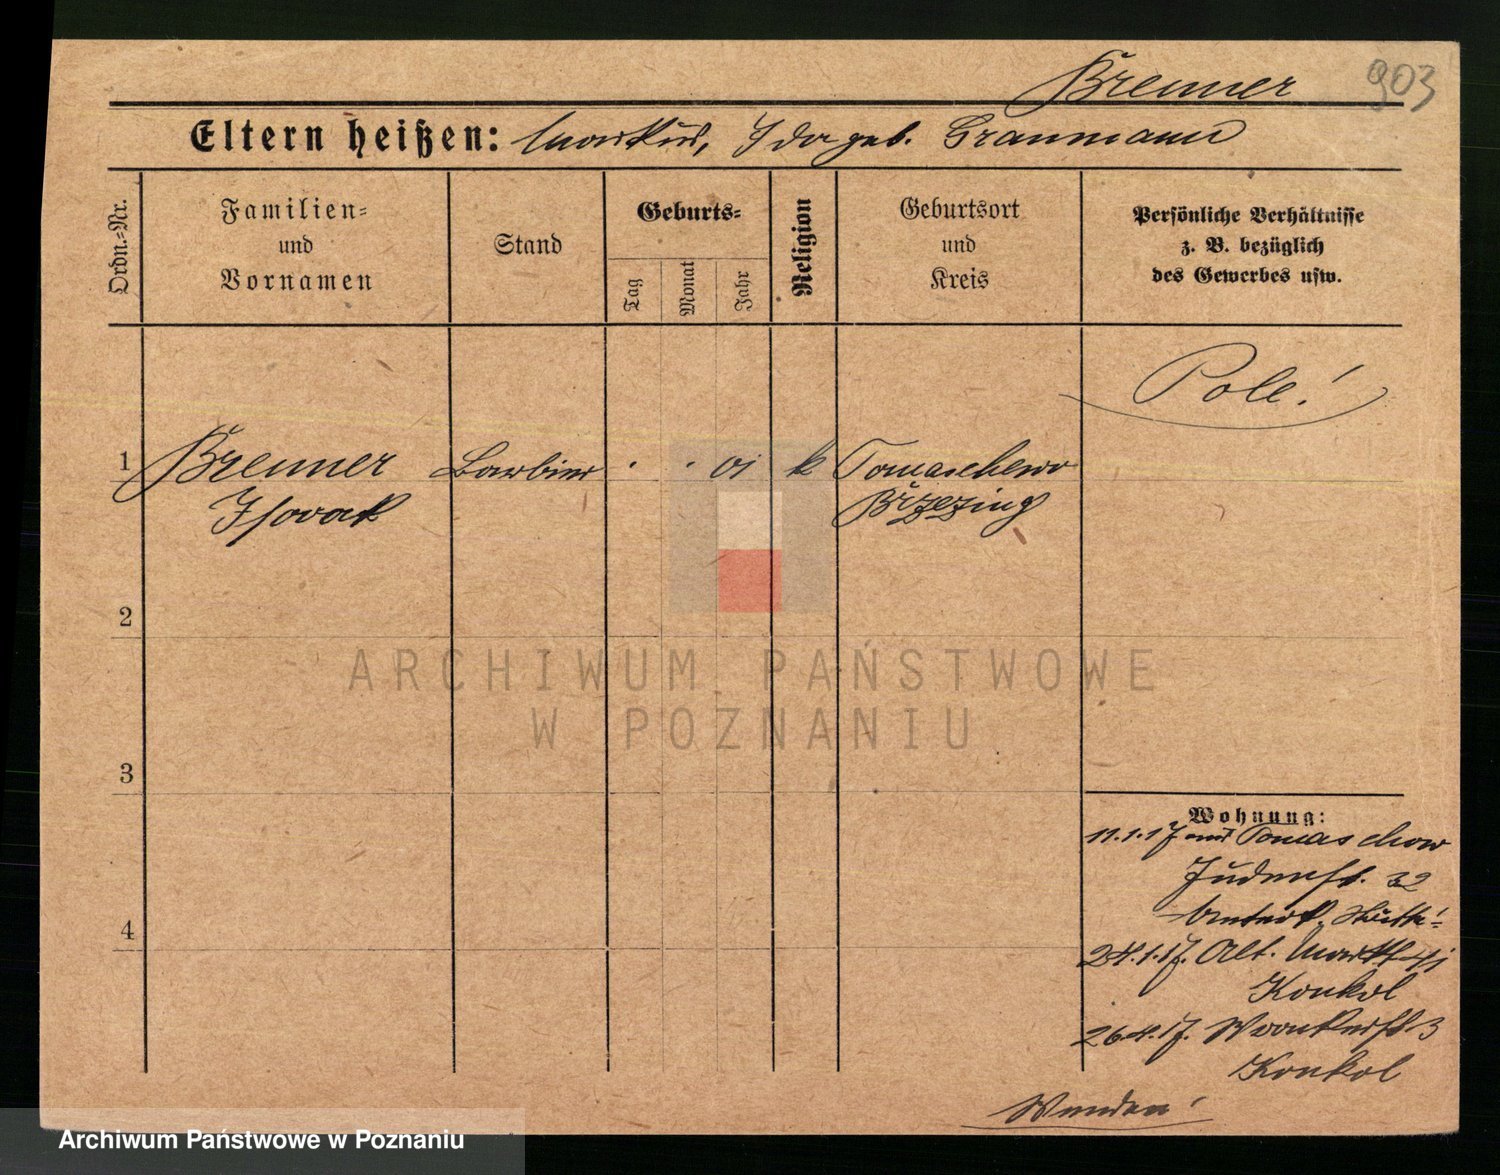 Brenner
903
Eltern heißen: Markus, Ida geb. Graumann
Ordn.=Nr.
Familien=
und
Vornamen
Stand
Geburts=
Tag
Monat
Jahr
Religion
Geburtsort
und
Kreis
Persönliche Verhältnisse
z. B. bezüglich
des Gewerbes usw.
Pole!
1 Brenner Barbier 01 k Tomaschew
Isaak Brzezing
2
3
4
ARCHIWUM PAŃSTWOWE
W POZNANIU
Wohnung:
11.1.17 aus Tomaschow
Judenst. 32
24.1.17. Alt. Markt 41
Konkol
26.4.17. Wronkerst. 3
Konkol
Wenden!
Archiwum Państwowe w Poznaniu